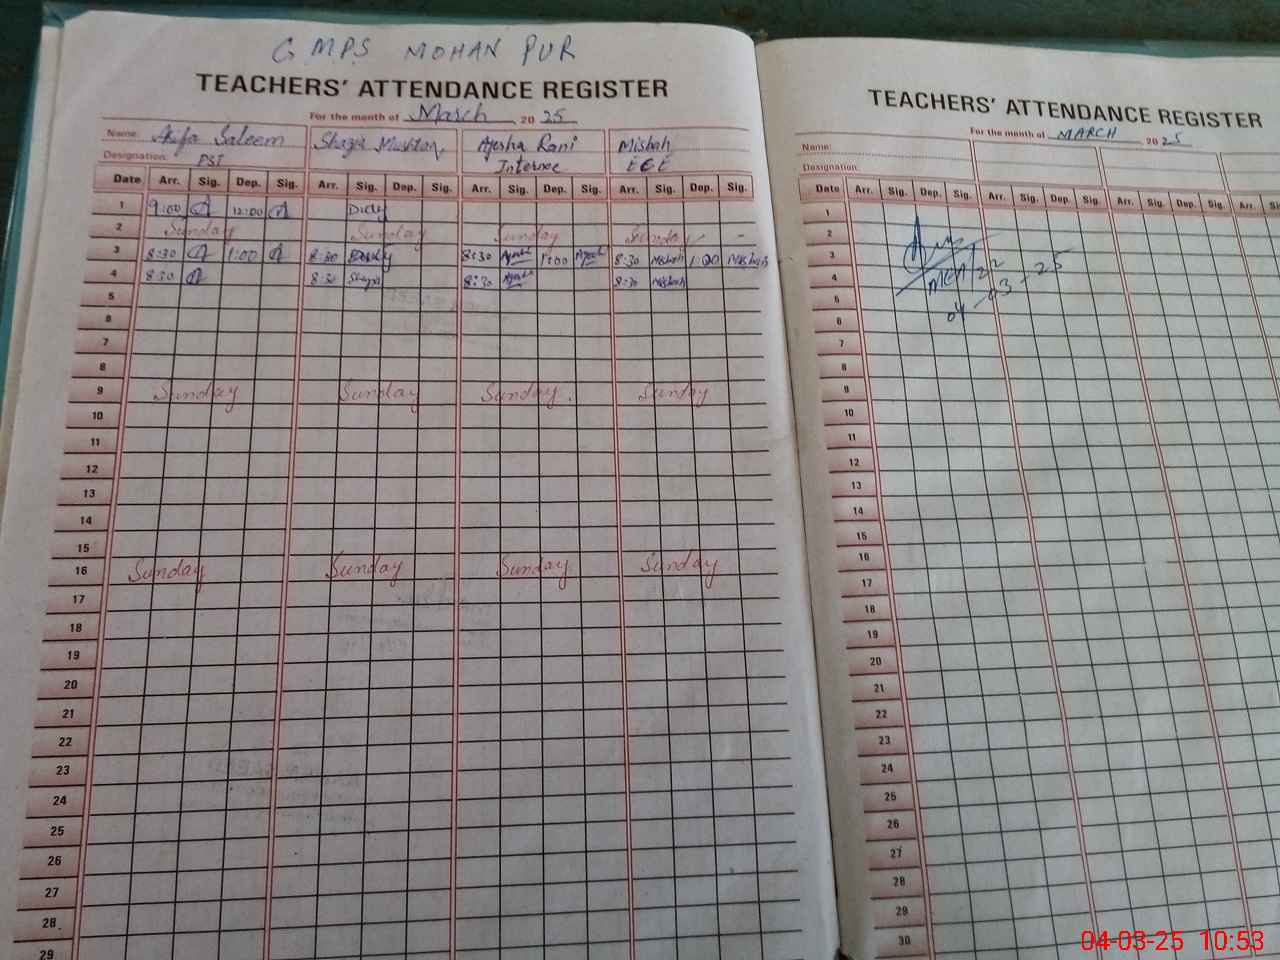 G. M.P.S MOHAN PUR
TEACHERS' ATTENDANCE REGISTER
For the month of March 20 25
Name: Saleem Shazia Mushtaq Ayesha Rani Misbah
Designation: PST Internee ECE
Date Arr. Sig. Dep. Sig. Arr. Sig. Dep. Sig. Arr. Sig. Dep. Sig. Arr. Sig. Dep. Sig.
1 9:00 12:00
2 Sunday Sunday Sunday Sunday -
3 8:30 1:00 8:30 8:30 Ayesha 1:00 Ayesha 8:30 Misbah 1:00 Misbah
4 8:30 8:30 Shazia 8:30 Ayesha 8:30 Misbah
5
6
7
8
9 Sunday Sunday Sunday. Sunday
10
11
12
13
14
15
16 Sunday Sunday Sunday Sunday
17
18
19
20
21
22
23
24
25
26
27
28
29
TEACHERS' ATTENDANCE REGISTER
For the month of MARCH 20 25
Name:
Designation:
Date Arr. Sig. Dep. Sig. Arr. Sig. Dep. Sig. Arr. Sig. Dep. Sig. Arr.
1
2
3
4
5
6
7
8
9
10
11
12
13
14
15
16
17
18
19
20
21
22
23
24
25
26
27
28
29
30
MEA 22
04-03-25
04-03-25 10:53